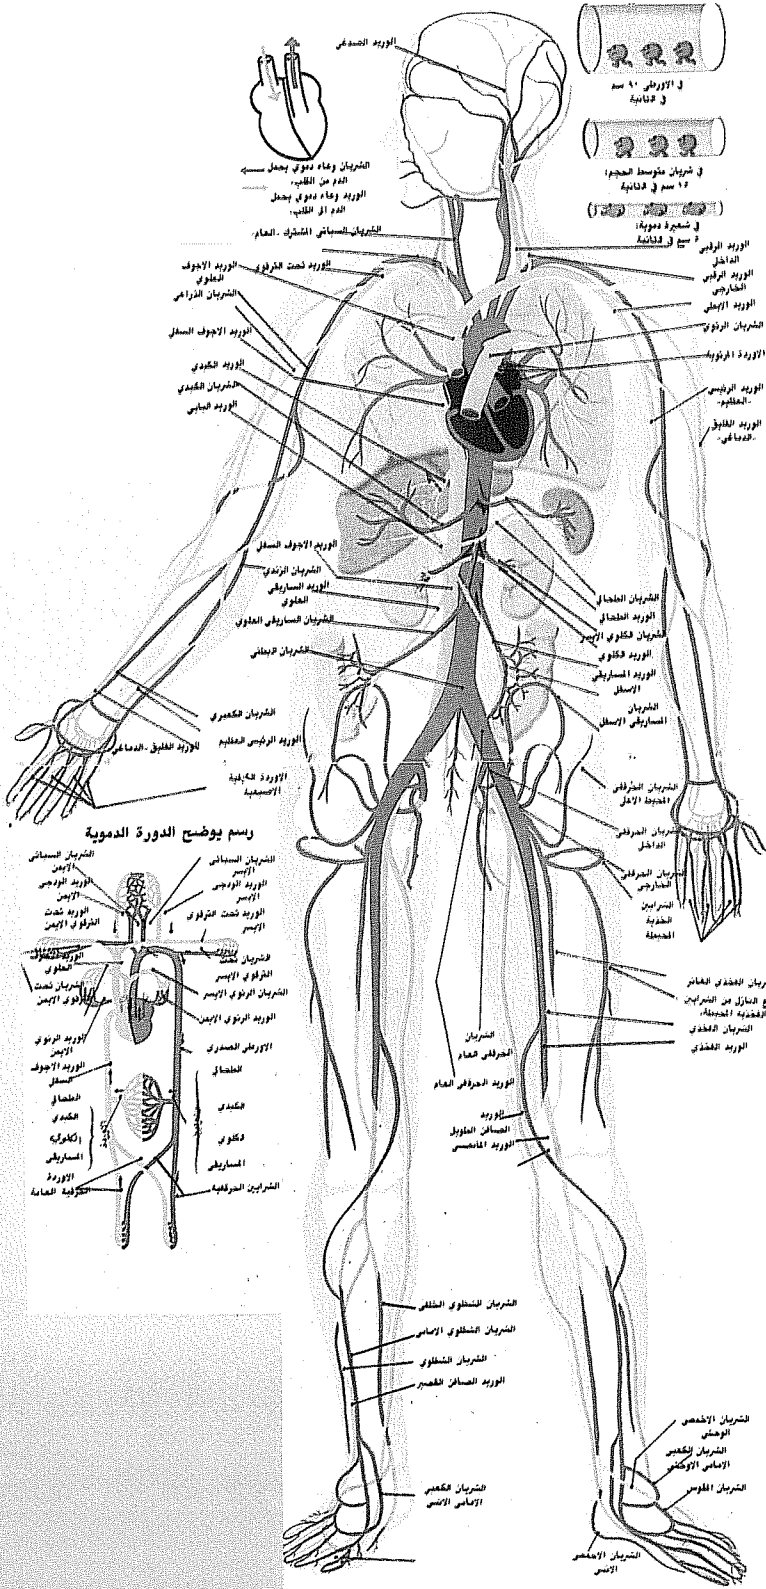 الوريد الصدغي
في الاورطى ٩٠ سم
في الثانية
في شريان متوسط الحجم:
١٥ سم في الثانية
في شعيرة دموية:
سم في الثانية
الشريان وعاء دموي يحمل
الدم من القلب.
الوريد وعاء دموي يحمل
الدم الى القلب.
الشريان السباتي المشترك -العام-
الوريد تحت الترقوي
الوريد الاجوف
العلوي
الشريان الذراعي
الوريد الاجوف السفلي
الوريد الكبدي
الشريان الكبدي
الوريد البابي
الوريد الرقبي
الداخل
الوريد الرقبي
الخارجي
الوريد الابطي
الشريان الرئوي
الاوردة الرئوية
الوريد الرئيسي
-العظيم-
الوريد القليق
-الدماغي-
الوريد الاجوف السفلي
الشريان الزندي
الوريد المساريقي
العلوي
الشريان المساريقي العلوي
الشريان
الشريان الطحالي
الوريد الطحالي
الشريان الكلوي الايسر
الوريد الكلوي
الوريد المساريقي
الاسفل
الشريان
المساريقي الاسفل
الشريان الكعبري
الوريد الرئيسي العظيم
الوريد القليق -الدماغي-
الاوردة
الاصبعية
الشريان الحرقفي
المحيط الاعلى
الشريان الحرقفي
الداخل
الشريان الحرقفي
الخارجي
الشرايين
الفخذية
المحيطة
رسم يوضح الدورة الدموية
الشريان السباتي
الايمن
الوريد الودجي
الايمن
الوريد تحت
الترقوي الايمن
الوريد
العلوي
الشريان تحت
الترقوي الايمن
الوريد الرئوي
الايمن
الوريد الاجوف
السفلي
الطحالي
الكبدي
الكلوي
المساريقي
الاوردة
الاوردة
الحرقفية العامة
الشريان السباتي
الايسر
الوريد الودجي
الايسر
الوريد تحت الترقوي
الايسر
الشريان تحت
الترقوي الايسر
الشريان الرئوي الايسر
الوريد الرئوي الايمن
الاورطى الصدري
الطحالي
الكبدي
الكلوي
المساريقي
الشرايين الحرقفية
الشريان
الحرقفي العام
الوريد الحرقفي العام
ريان الفخذي الغائر
النازل من الشرايين
الفخذية المحيطة.
الشريان الفخذي
الوريد الفخذي
الوريد
الصافن الطويل
الوريد المابضي
الشريان الشظوي الخلفي
الشريان الشظوي الامامي
الشريان الشظوي
الوريد الصافن القصير
الشريان الكعبي
الامامي الانسي
الشريان الاخمصي
الوحشي
الشريان الكعبي
الامامي الوحشي
الشريان المقوس
الشريان الاخمصي
الانسي